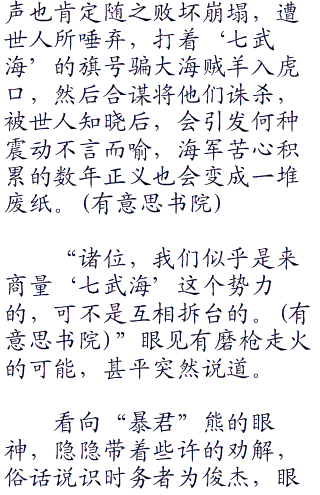 声也肯定随之败坏崩塌，遭
世人所唾弃，打着‘七武
海’的旗号骗大海贼羊入虎
口，然后合谋将他们诛杀，
被世人知晓后，会引发何种
震动不言而喻，海军苦心积
累的数年正义也会变成一堆
废纸。(有意思书院)
“诸位，我们似乎是来
商量‘七武海’这个势力
的，可不是互相拆台的。(有
意思书院)”眼见有磨枪走火
的可能，甚平突然说道。
看向“暴君”熊的眼
神，隐隐带着些许的劝解，
俗话说识时务者为俊杰，眼